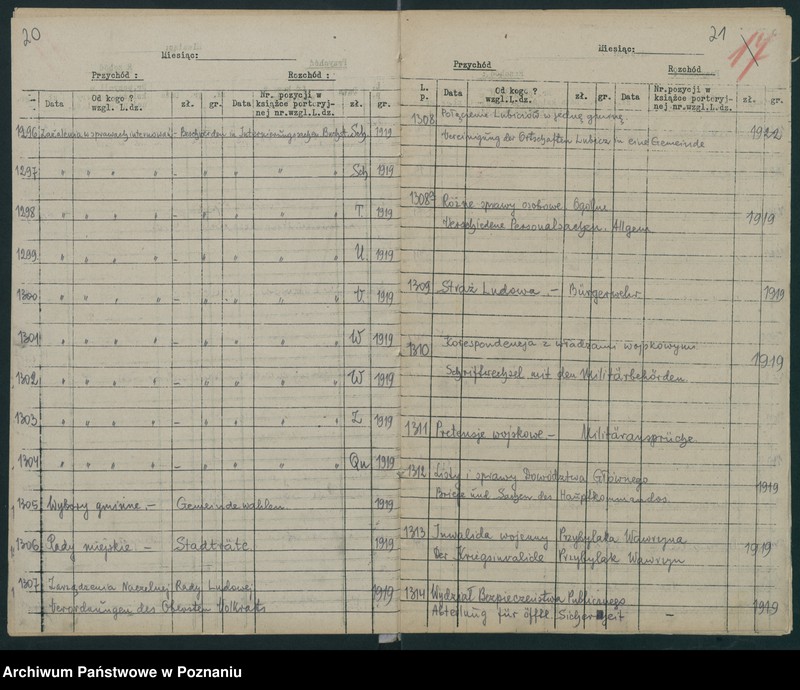 20
Miesiąc:
Przychód : Rozchód :
Data Od kogo ? wzgl. L.dz. zł. gr. Data Nr. pozycji w książce portoryjnej nr.wzgl.L.dz. zł. gr.
1296 w sprawach internowań – Beschwerden in Internierungssachen Buchst. Sch. 1919
1297 " " " " – " " " " Sch 1919
1298 " " " " – " " " " T 1919
1299 " " " " – " " " " U 1919
1300 " " " " – " " " " V 1919
1301 " " " " – " " " " W 1919
1302 " " " " – " " " " W 1919
1303 " " " " – " " " " Z 1919
1304 " " " " – " " " " Qu 1919
1305 Wybory gminne – Gemeindewahlen 1919
1306 Rady miejskie – Stadträte 1919
1307 Zarządzenia Naczelnej Rady Ludowej
Verordnungen des Obersten Volksrats 1919
21
17
Miesiąc:
Przychód Rozchód
L. p. Data Od kogo ? wzgl.L.dz. zł. gr. Data Nr.pozycji w książce portoryjnej nr.wzgl.L.dz. zł. gr.
1308 Połączenie Lubiczów w jedną gminę.
Vereinigung der Ortschaften Lubicz in eine Gemeinde 1922
1308a Różne sprawy osobowe Ogólne
Verschiedene Personalsachen. Allgem 1919
1309 Straż Ludowa – Bürgerwehr 1919
1310 Korespondencja z władzami wojskowymi
Schriftwechsel mit den Militärbehörden 1919
1311 Pretensje wojskowe – Militäransprüche
1312 Listy i sprawy Dowództwa Głównego
Briefe und Sachen des Hauptkommandos 1919
1313 Inwalida wojenny Przybylaka Wawrzyna
Der Kriegsinvalide Przybylak Wawrzyn 1919
1314 Wydział Bezpieczeństwa Publicznego
Abteilung für öfftl. Sicherheit – 1919
Archiwum Państwowe w Poznaniu